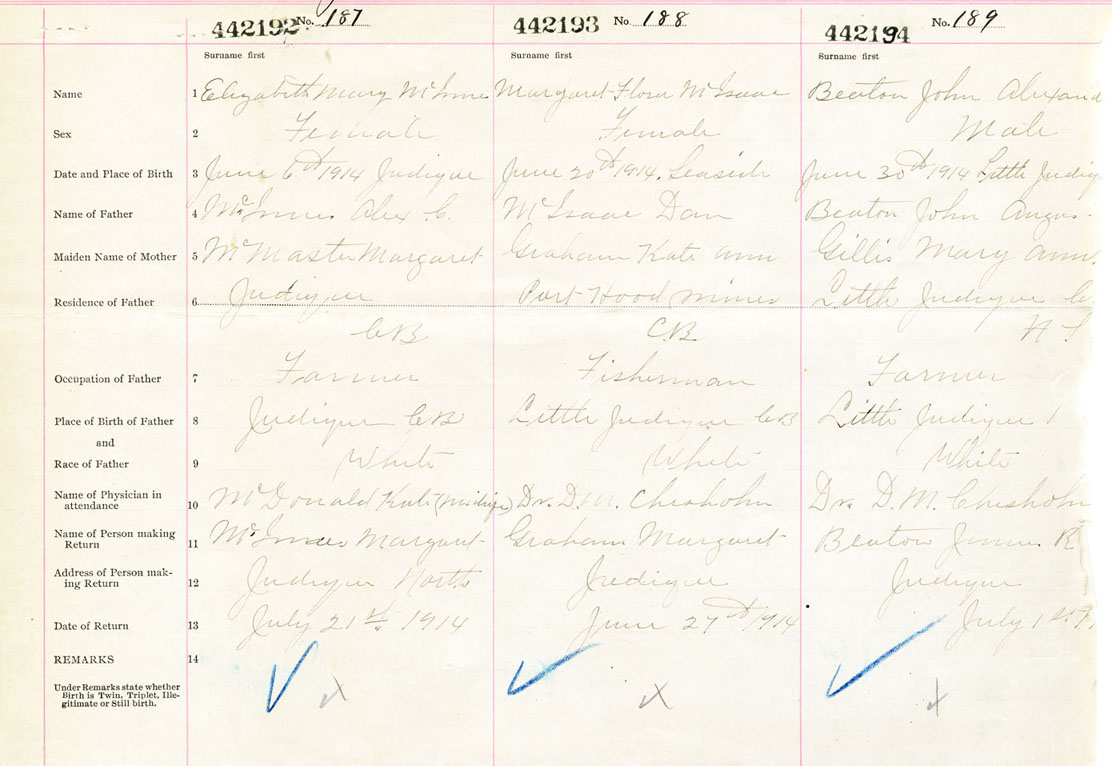 442192 No. 187 442193 No 188 442194 No. 189
Surname first Surname first Surname first
Name 1 Elizabeth Mary McInnes Margaret Flora McIsaac Beaton John Alexand
Sex 2 Female Female Male
Date and Place of Birth 3 June 6th 1914 Judique June 20th 1914. Seaside June 30th 1914 Little Judiq
Name of Father 4 McInnes Alex C. McIsaac Dan Beaton John Angus
Maiden Name of Mother 5 McMaster Margaret Graham Kate Ann Gillis Mary Ann.
Residence of Father 6 Judique Port Hood mines Little Judique
CB C.B N S
Occupation of Father 7 Farmer Fisherman Farmer
Place of Birth of Father 8 Judique CB Little Judique CB Little Judique
and
Race of Father 9 White White White
Name of Physician in
attendance 10 McDonald Kate Dr. D. M. Chisholm Dr. D. M. Chisholm
Name of Person making
Return 11 McInnes Margaret Graham Margaret Beaton James R
Address of Person mak-
ing Return 12 Judique North Judique Judique
Date of Return 13 July 21st 1914 June 27th 1914 July 1st
REMARKS 14
Under Remarks state whether
Birth is Twin, Triplet, Ille-
gitimate or Still birth.